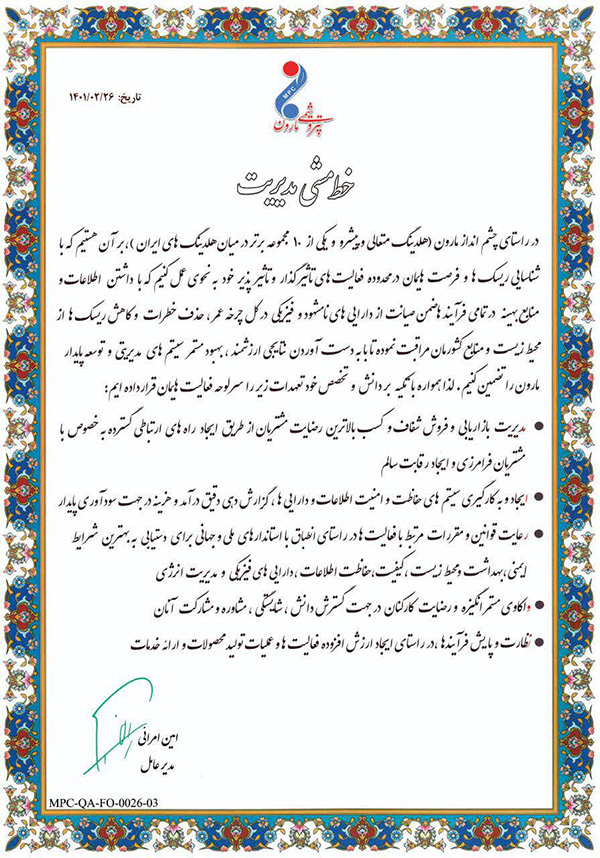 تاریخ: ۱۴۰۱/۰۲/۲۶
MPC
پتروشیمی مارون
خط مشی مدیریت
در راستای چشم انداز مارون (هلدینگ متعالی و پیشرو و یکی از ۱۰ مجموعه برتر در میان هلدینگ های ایران )، بر آن هستیم که با
شناسایی ریسک ها و فرصت هایمان در محدوده فعالیت های تاثیرگذار و تاثیر پذیر خود به نحوی عمل کنیم که با داشتن اطلاعات و
منابع بهینه در تمامی فرآیندها ضمن صیانت از دارایی های نامشهود و فیزیکی در کل چرخه عمر، حذف خطرات و کاهش ریسک ها از
محیط زیست و منابع کشورمان مراقبت نموده تا با به دست آوردن نتایجی ارزشمند ، بهبود مستمر سیستم های مدیریتی و توسعه پایدار
مارون را تضمین کنیم. لذا همواره با تکیه بر دانش و تخصص خود تعهدات زیر را سرلوحه فعالیت هایمان قرار داده ایم:
● مدیریت بازاریابی و فروش شفاف و کسب بالاترین رضایت مشتریان از طریق ایجاد راه های ارتباطی گسترده به خصوص با
مشتریان فرامرزی و ایجاد رقابت سالم
● ایجاد و به کارگیری سیستم های حفاظت و امنیت اطلاعات و دارایی ها ، گزارش دهی دقیق درآمد و هزینه در جهت سودآوری پایدار
● رعایت قوانین و مقررات مرتبط با فعالیت ها در راستای انطباق با استانداردهای ملی و جهانی برای دستیابی به بهترین شرایط
ایمنی، بهداشت و محیط زیست ، کیفیت، حفاظت اطلاعات ، دارایی های فیزیکی و مدیریت انرژی
● واکاوی مستمر انگیزه و رضایت کارکنان در جهت گسترش دانش ، شایستگی ، مشاوره و مشارکت آنان
● نظارت و پایش فرآیندها ،در راستای ایجاد ارزش افزوده فعالیت ها و عملیات تولید محصولات و ارائه خدمات
امین امرائی
مدیرعامل
MPC-QA-FO-0026-03